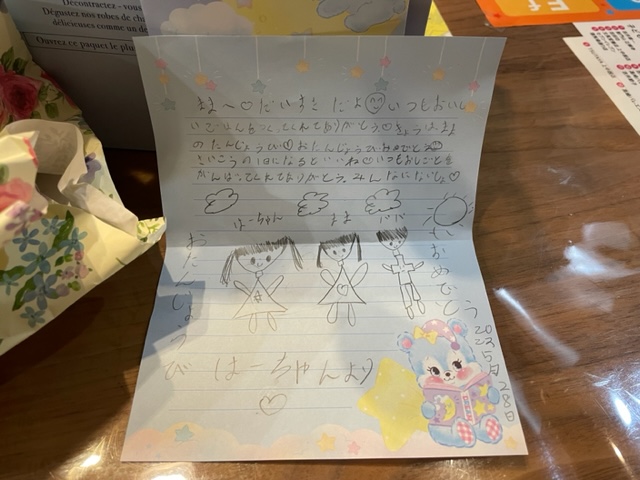 délicieuses comme un de
Ouvrez ce paquet le plu
まま〜♡だいすきだよ いつもおいしい
ごはんをつくってくれてありがとう♡きょうはまま
のたんじょうび♡おたんじょうびおめでとう
さいこうの1日になるといいね♡いつもおしごとを
がんばってくれてありがとう。みんなにないしょ♡
はーちゃん まま パパ
おたんじょうび
おめでとう
はーちゃんより
2023
5月28日